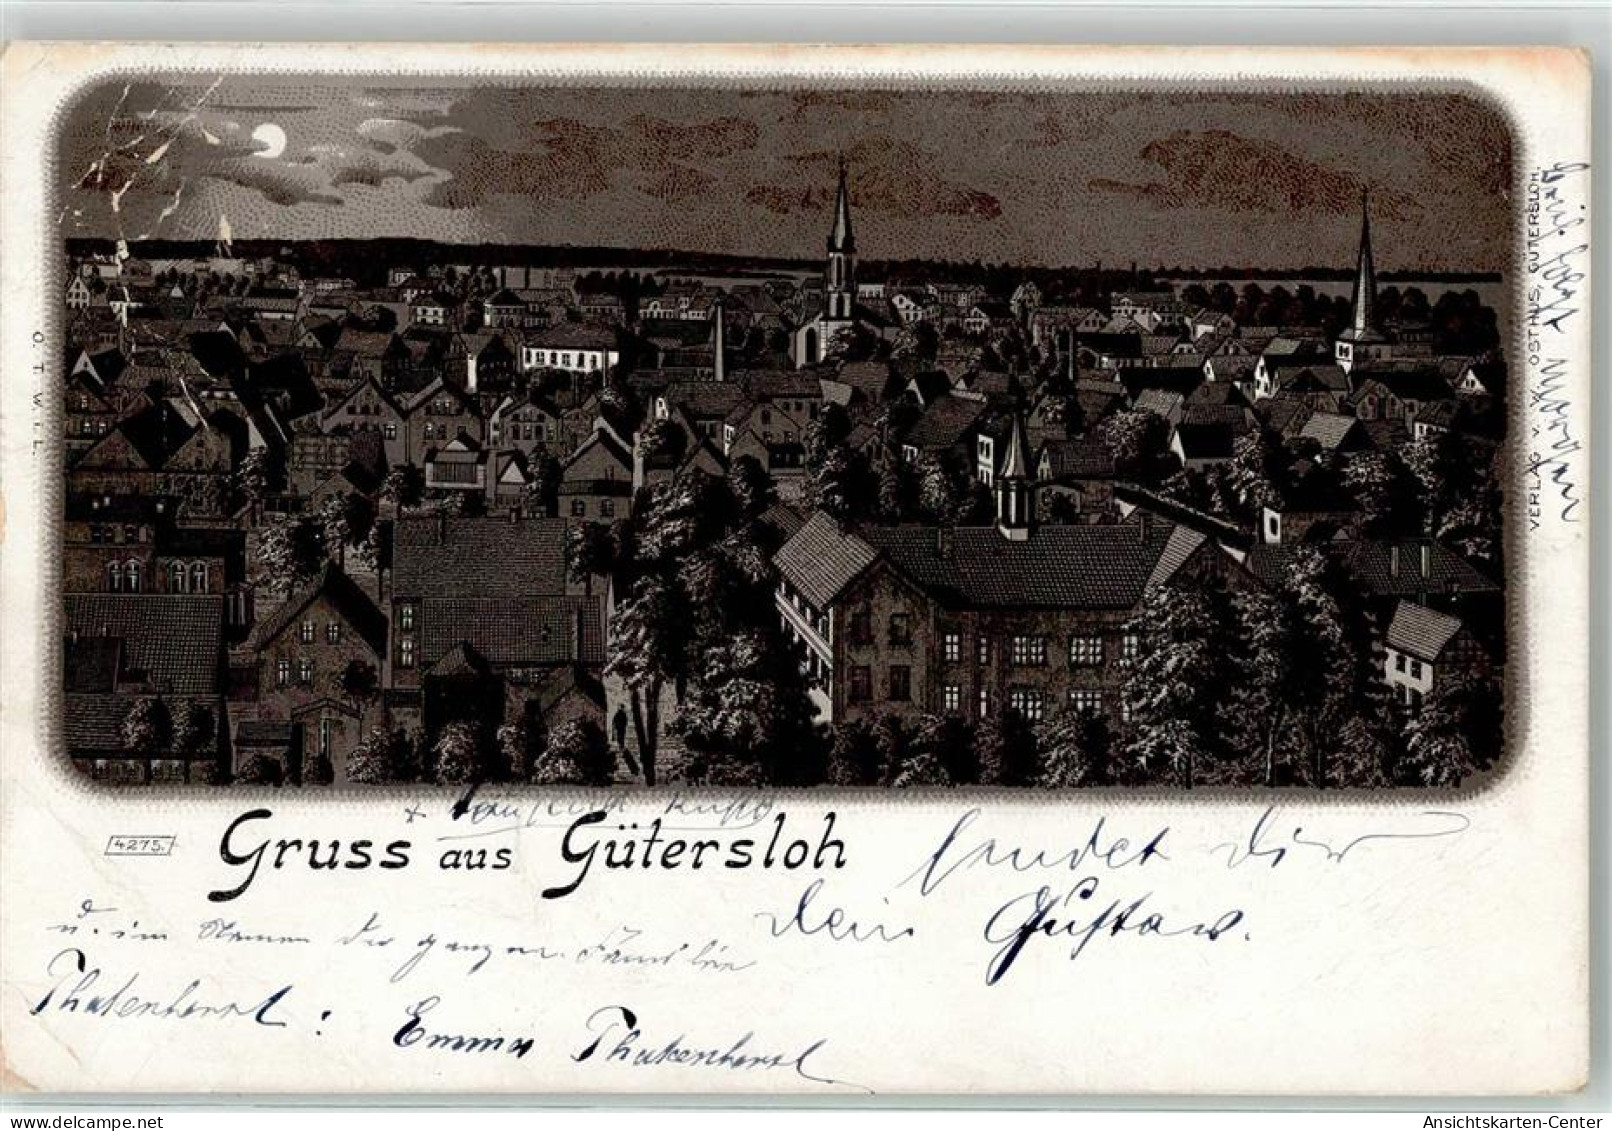 O. T. W. I. L.
VERLAG v. W. OSTHUS, GÜTERSLOH.
4275.
Gruss aus Gütersloh
sendet Dir
Dein Gustav.
u. im Namen der ganzen Familie
Thakenhorst : Emma Thakenhorst
Ansichtskarten-Center